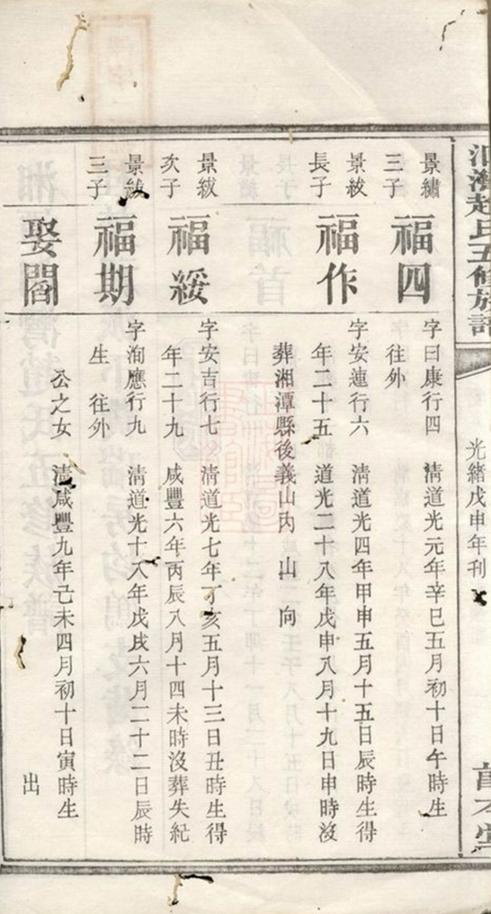 趙氏五修族譜
光緒戊申年刊
景繡
三子
福四
字曰康行四 清道光元年辛巳五月初十日午時生
往外
景紱
長子
福作
字安蓮行六 清道光四年甲申五月十五日辰時生得
年二十五 道光二十八年戊申八月十九日申時沒
葬湘潭縣後義山內 山 向
景紱
次子
福綏
字安吉行七 清道光七年丁亥五月十三日丑時生得
年二十九 咸豐六年丙辰八月十四未時沒葬失紀
景紱
三子
福期
字洵應行九 清道光十八年戊戌六月二十二日辰時
生 往外
娶閻
公之女 清咸豐九年己未四月初十日寅時生
出